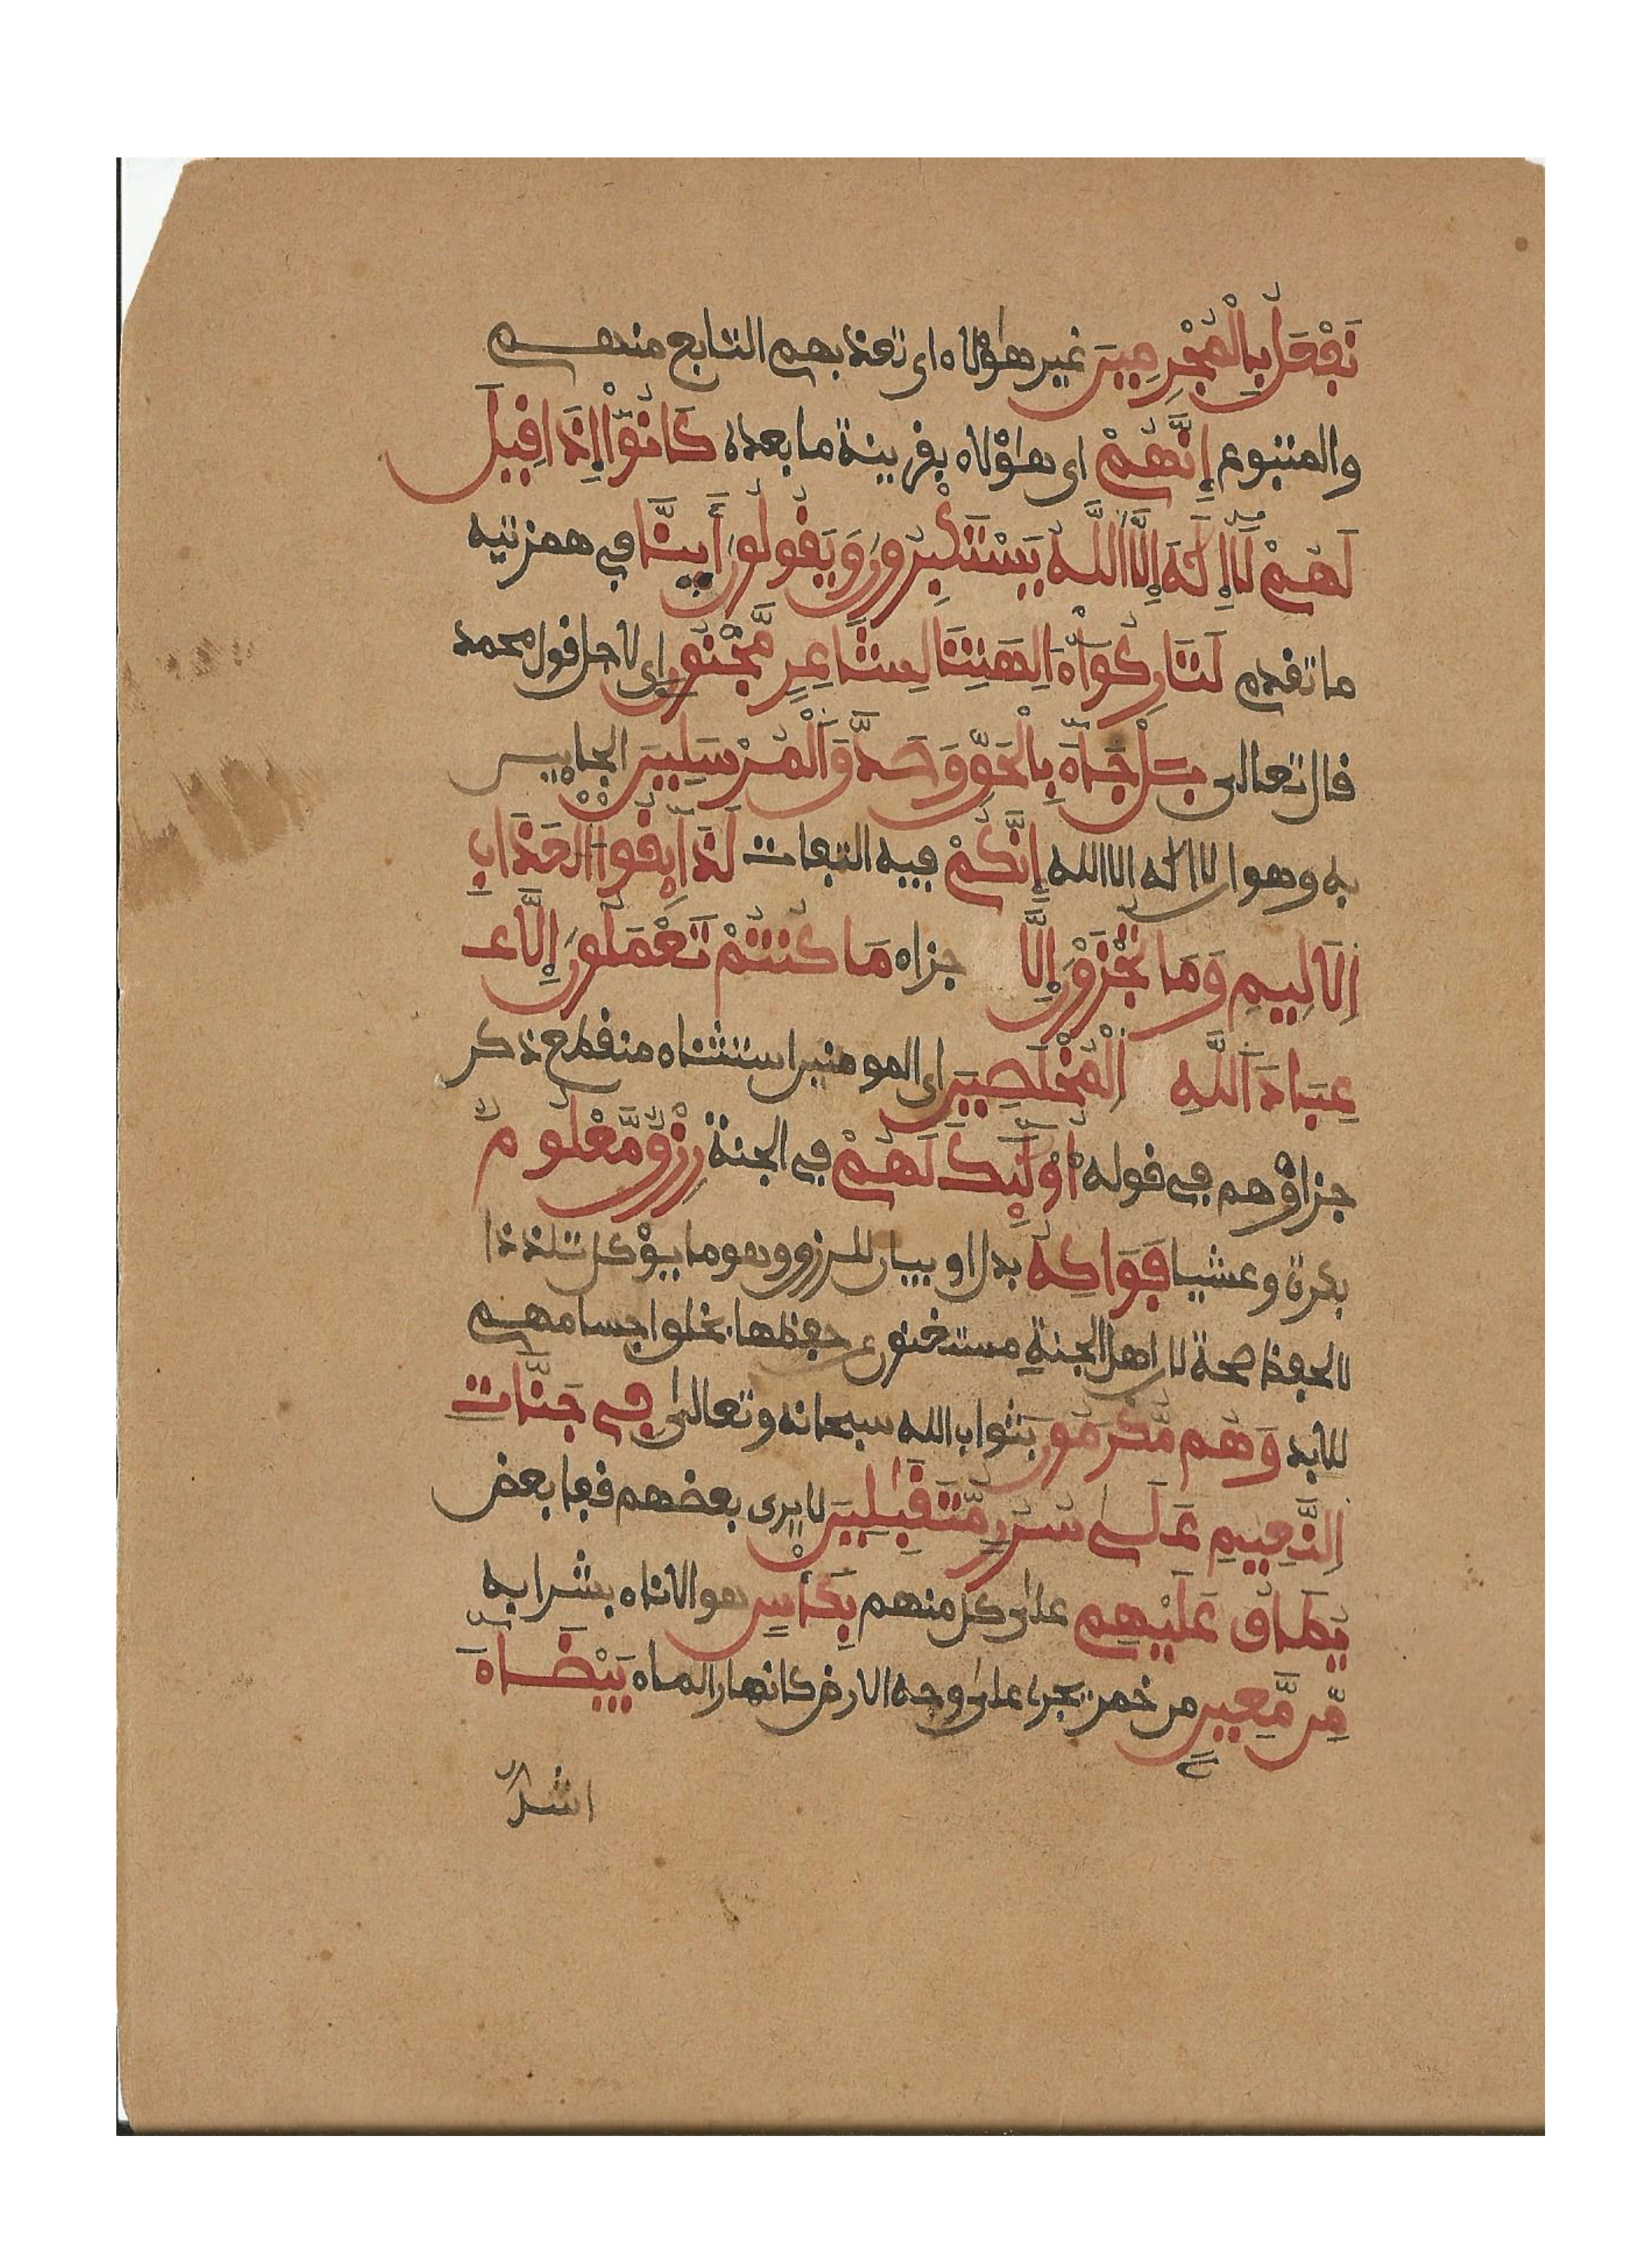 نَفْعَلُ بِالْمُجْرِمِينَ غير هؤلاء اى نعذبهم التابع منهم
والمتبوع إِنَّهُمْ اى هؤلاء بقرينة ما بعده كَانُوٓاْ إِذَا قِيلَ
لَهُمْ لَآ إِلَٰهَ إِلَّا اَللَّهُ يَسْتَكْبِرُونَ وَيَقُولُونَ أَينَّا في همزتيه
ما تقدم لَتَارِكُوٓاْ ءَالِهَتِنَا لِشَاعِرٍ مَّجْنُونٍ اى لاجل قول محمد
قال تعالى بَلْ جَآءَ بِالْحَقِّ وَصَدَّقَ اَلْمُرْسَلِينَ الجايين
به وهو ان لا اله الا الله إِنَّكُمْ فيه التفات لَذَآئِقُواْ اَلْعَذَابِ
اِلَالِيمِ وَمَا تُجْزَوْنَ إِلَّا جزاء مَا كُنتُمْ تَعْمَلُونَ إِلَّا عـ
عِبَادَ اَللَّهِ اِلْمُخْلَصِينَ اى المومنين استثناء منقطع ذكر
جزاؤهم في قوله أُوْلَٰٓئِكَ لَهُمْ في الجنة رِزْقٌ مَّعْلُومٌ
بكرة وعشيا فَوَاكِهُ بدل او بيان للرزق وهو ما يؤكل تلذذا
لا لحفظ صحة لان اهل الجنة مستغنون عن حفظها بخلق اجسامهم
للابد وَهُم مُّكْرَمُونَ بثواب الله سبحانه وتعالى فِي جَنَّاتِ
اِلنَّعِيمِ عَلَىٰ سُرُرٍ مُّتَقَٰبِلِينَ لا يرى بعضهم قفا بعض
يُطَافُ عَلَيْهِم على كل منهم بِكَأْسٍ هو الاناء بشرابه
مِّن مَّعِينٍ من خمر يجرى على وجه الارض كانهار الماء بَيْضَآءَ
اشدّ